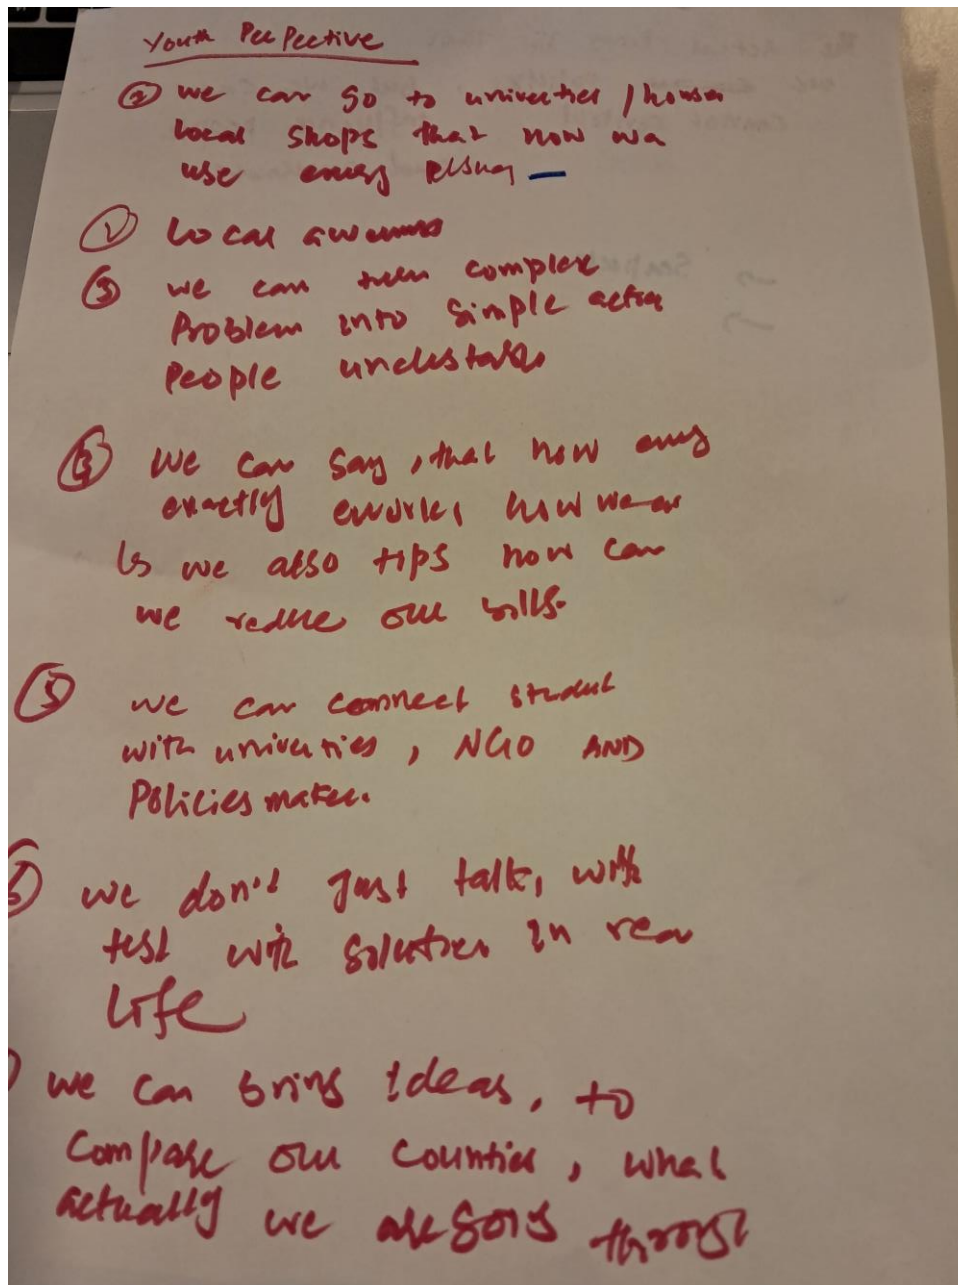 Youth PeePective
② we can go to univeties / houses
local shops that how we
use energy
① Local awarness
③ we can turn complex
Problem into Simple action
People understand
④ we can say, that how energy
exactly works, how we can
↳ we also tips how can
we reduce our bills.
⑤ we can connect student
with univeties, NGO AND
Policies maker.
⑥ we don't Just talk, with
test with solution in real
Life
we can bring ideas, to
compare our countries, what
actually we are going through